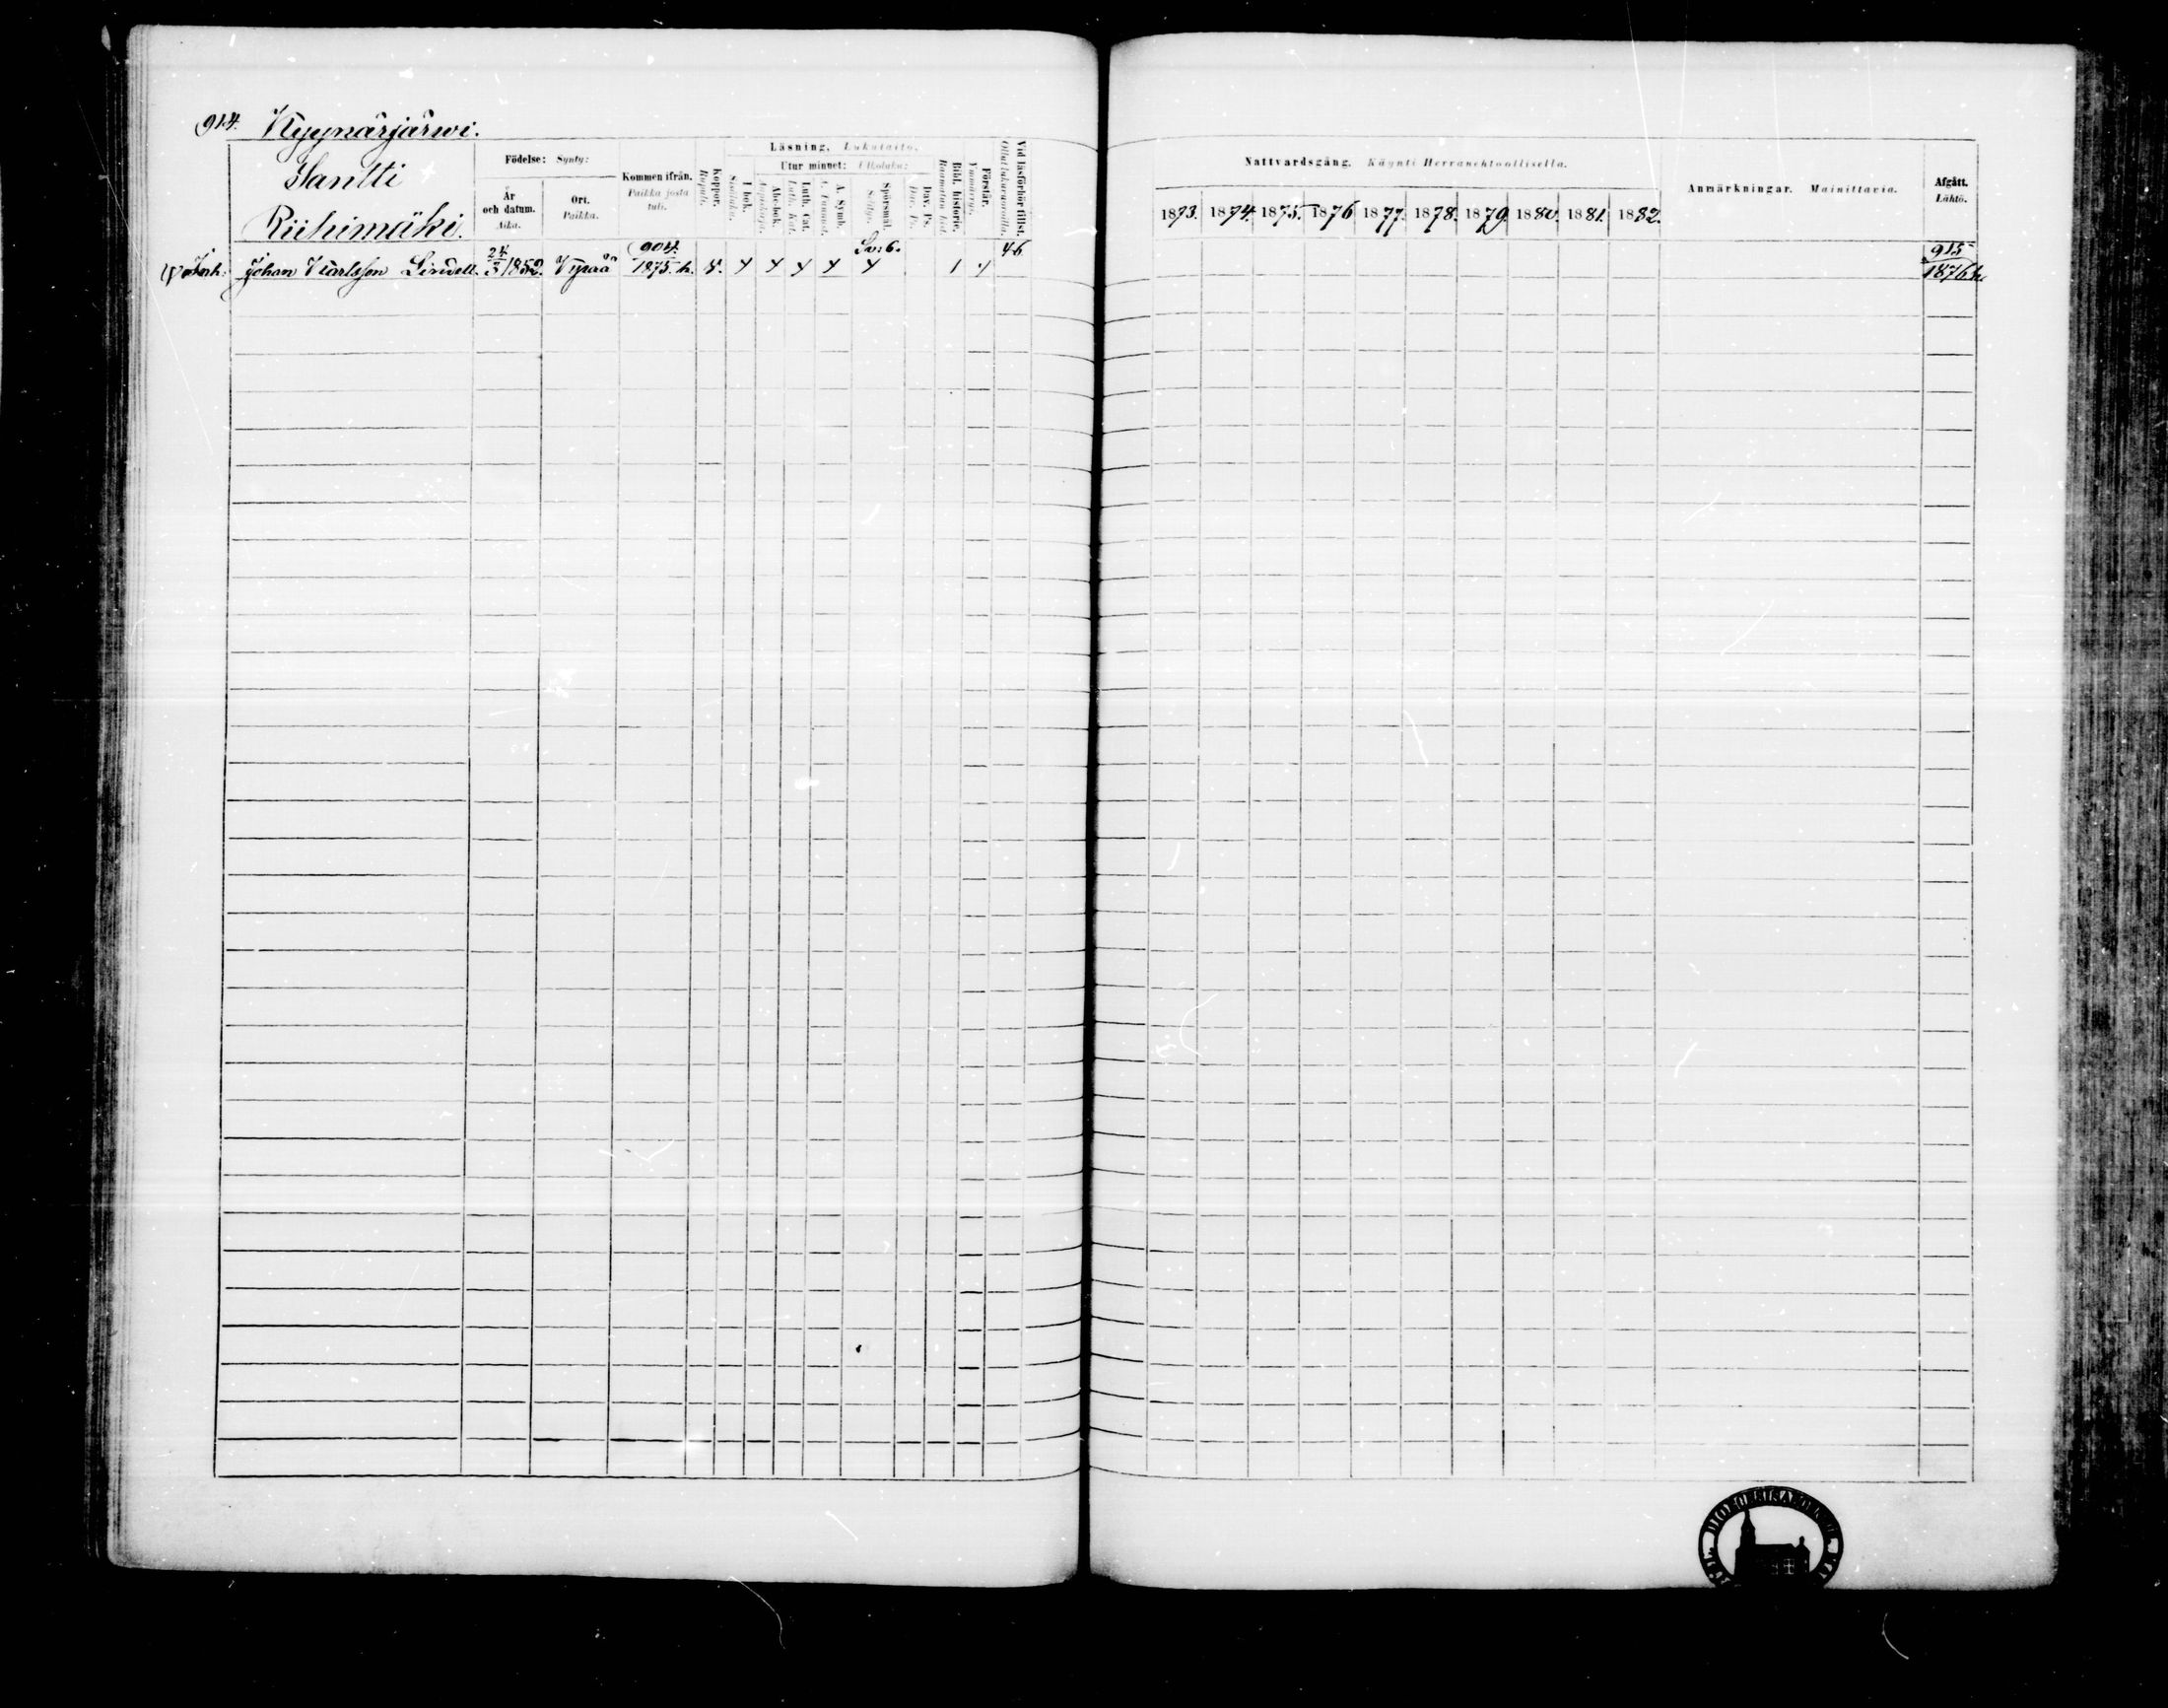 914. Kyynärjärwi.
Santti
Riihimäki.
Födelse: Synty:
År och datum. Aika.
Ort. Paikka.
Kommen ifrån. Paikka josta tuli.
Koppor. Rupuli.
Läsning, Lukutaito,
I bok. Sisäluku.
Utur minnet: Ulkoluku:
Abc-bok. Aapiskirja.
Luth. Cat. Luth. Kat.
A. Symb. A. Tunnust.
Spörsmål.
Dav. Ps. Dav. Ps.
Bibl. historie. Raamatun hist.
Förstår. Ymmärrys.
Vid läsförhör tillst. Ollut lukukuulusteluilla.
Nattvardsgång. Käynti Herranehtoollisella.
1873. 1874. 1875. 1876 1877. 1878. 1879. 1880. 1881. 1882.
Anmärkningar. Mainittavia.
Afgått. Lähtö.
Johan Karlsson Lindell. 24/3 1852. Kyrö 904. 1875. h. Sv: 6. 46 915 1876 h.